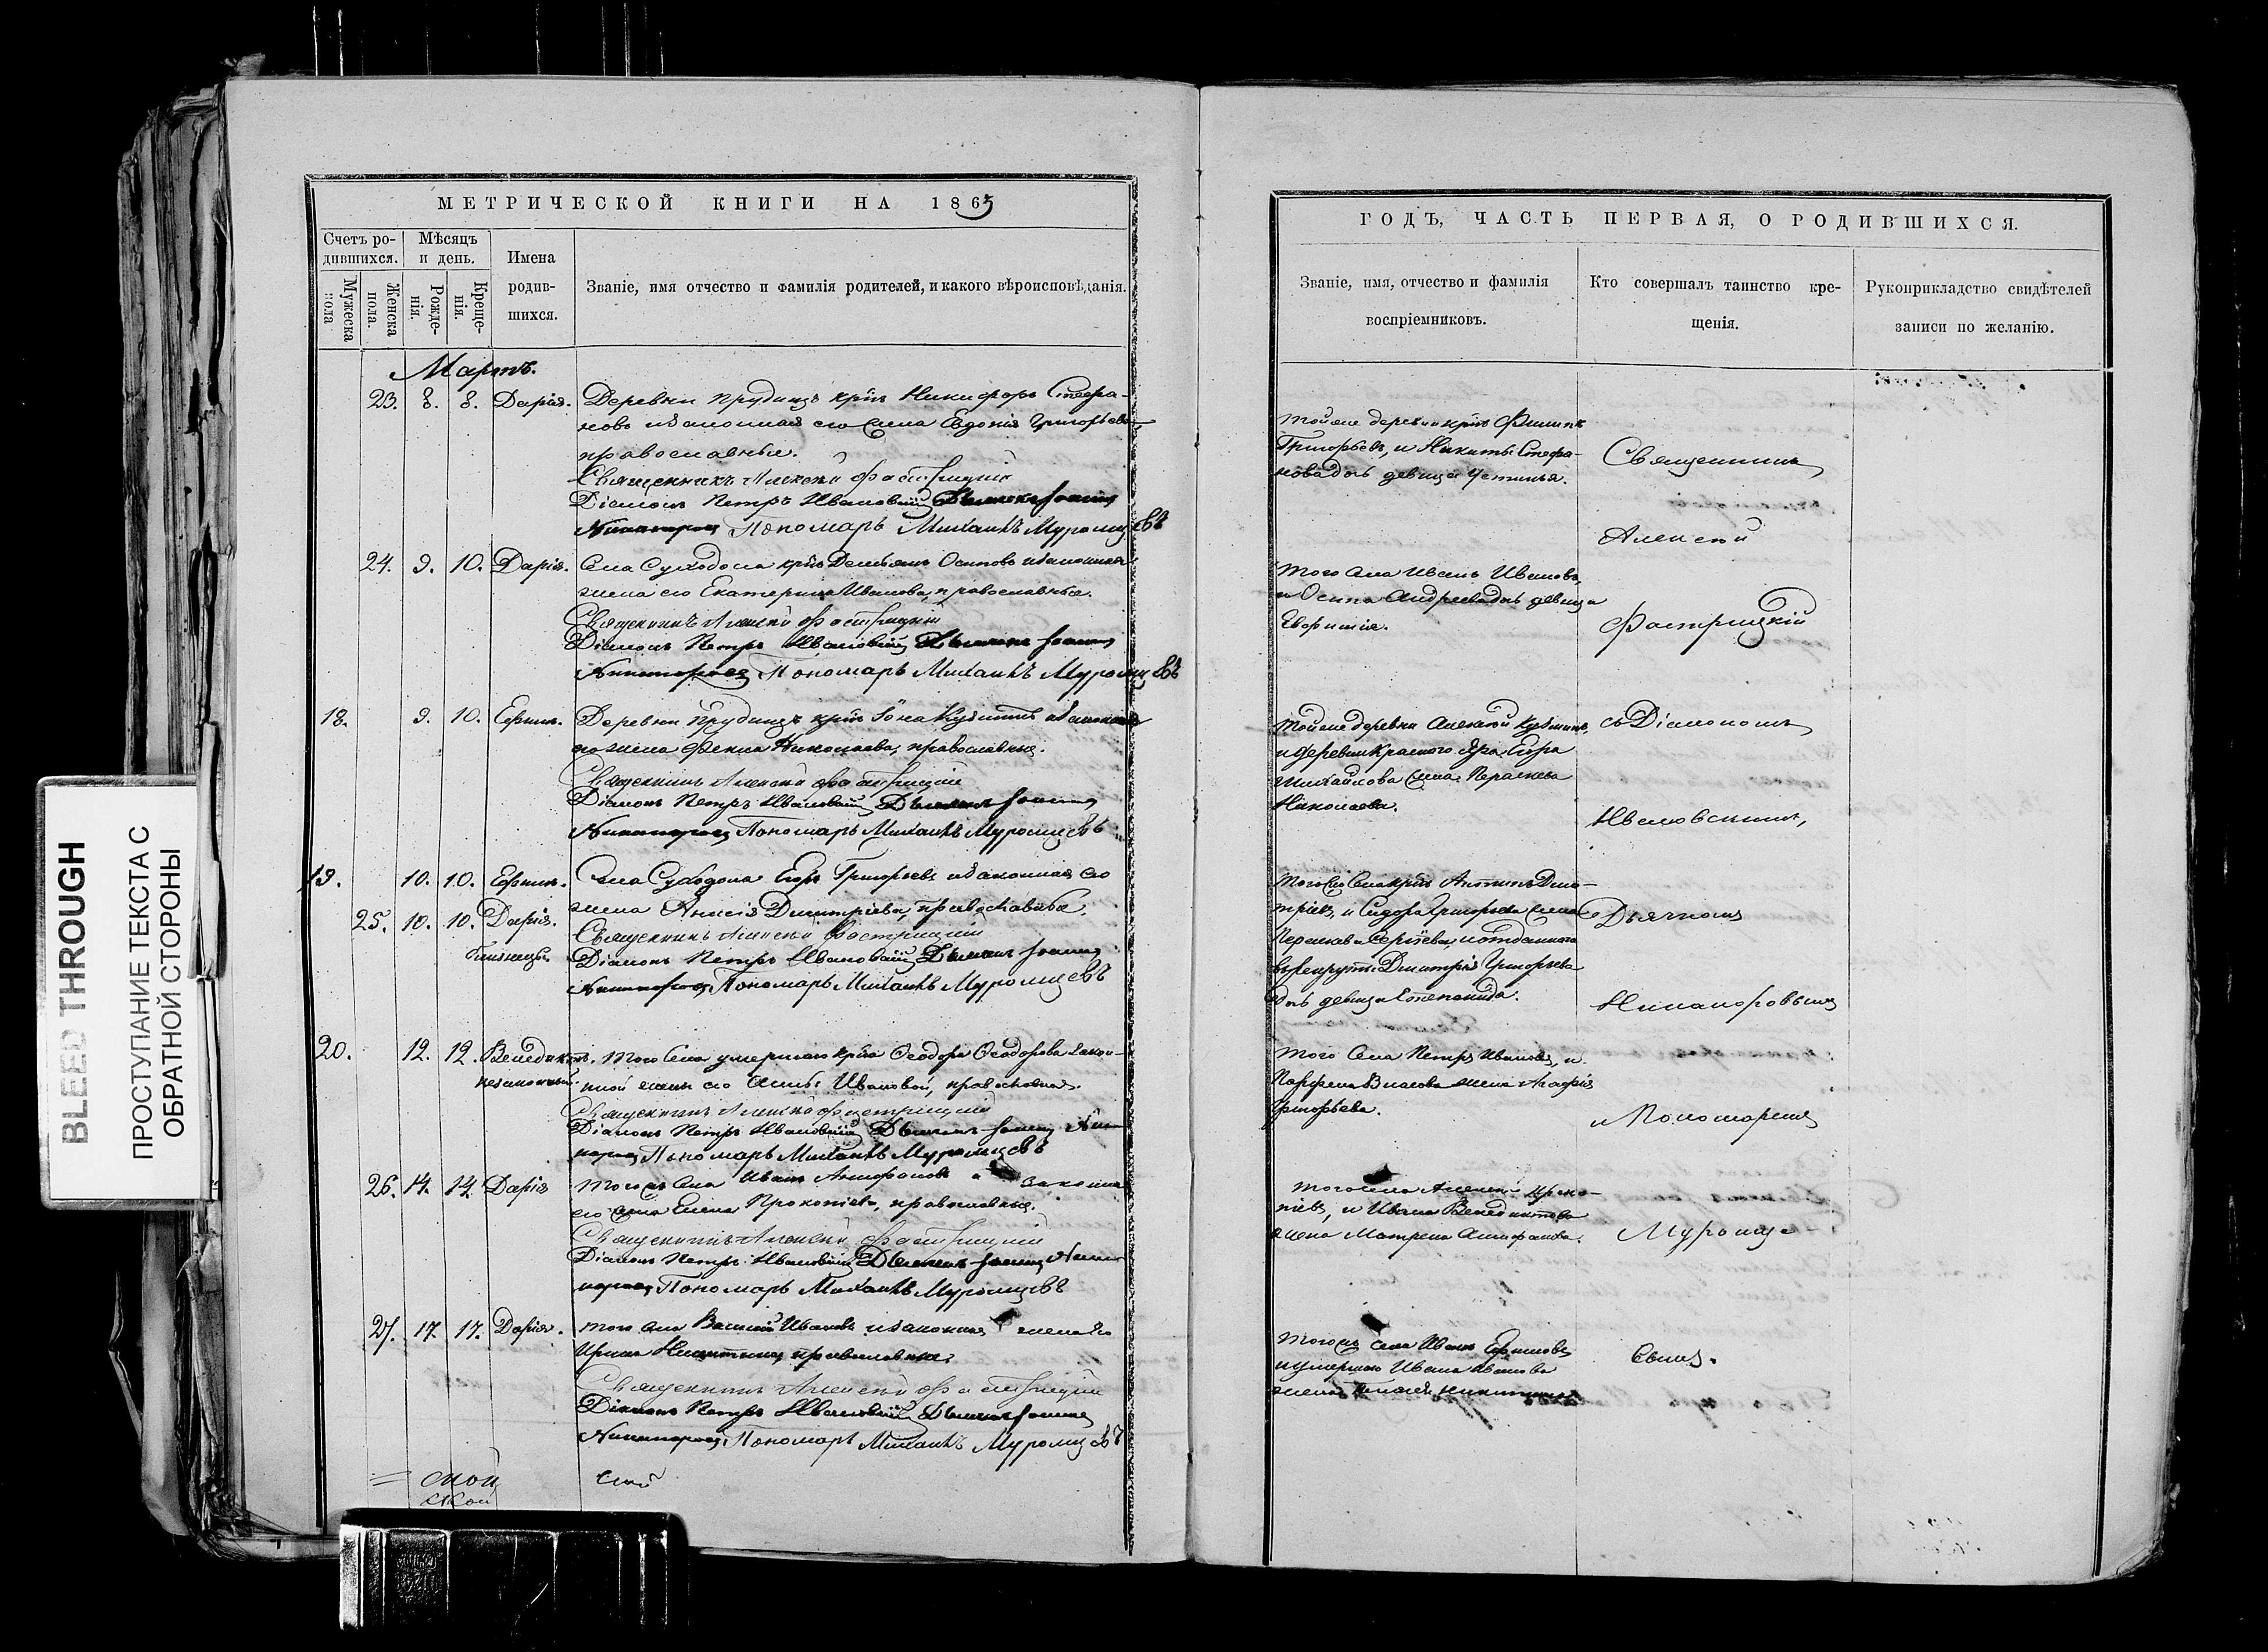 BLEED THROUGH
ПРОСТУПАНИЕ ТЕКСТА С
ОБРАТНОЙ СТОРОНЫ
МЕТРИЧЕСКОЙ КНИГИ НА 1865
Счетъ ро-
дившихся.
Мѣсяцъ
и день.
Имена
родив-
шихся.
Мужеска
пола
Женска
пола.
Рожде-
нія.
Креще-
нія.
Званіе, имя отчество и фамилія родителей, и какого вѣроисповѣданія.
Мартъ.
23. 8. 8. Дарія. Деревни Прудищъ крѣс Никифоръ Стефа-
новъ и законная его жена Евдокія Григорьева
православные.
Священникъ Алексѣй Фастрицкій
Діаконъ Петръ Ивановскій Дьячекъ Іоаннъ
Никаноровъ Пономарь Михаилъ Муромцевъ
24. 9. 10. Дарія. Села Суходола крѣс Демьянъ Осиповъ и законная
жена его Екатерина Иванова, православные.
Священникъ Алексѣй Фастрицкій
Діаконъ Петръ Ивановскій Дьячекъ Іоаннъ
Никаноровъ Пономарь Михаилъ Муромцевъ
18. 9. 10. Ефимъ. Деревни Прудищъ крѣс Іона Кузминъ и законная
его жена Фекла Николаева, православные.
Священникъ Алексѣй Фастрицкій
Діаконъ Петръ Ивановскій Дьячекъ Іоаннъ
Никаноровъ Пономарь Михаилъ Муромцевъ
19. 10. 10. Ефимъ. Села Суходола Егоръ Григорьевъ и законная его
25. 10. 10. Дарія. жена Анисія Димитріева, православные.
близнецы
Священникъ Алексѣй Фастрицкій
Діаконъ Петръ Ивановскій Дьячекъ Іоаннъ
Никаноровъ Пономарь Михаилъ Муромцевъ
20. 12. 12. Венедиктъ. Того села умершаго крѣс Ѳеодора Ѳеодорова закон-
незаконный. ной жены его Анны Ивановой, православная.
Священникъ Алексѣй Фастрицкій
Діаконъ Петръ Ивановскій Дьячекъ Іоаннъ Ника-
норовъ Пономарь Михаилъ Муромцевъ
26. 14. 14. Дарія Того села Иванъ и законная
его жена Елена Прокопіева, православные.
Священникъ Алексѣй Фастрицкій
Діаконъ Петръ Ивановскій Дьячекъ Іоаннъ Ника-
норовъ Пономарь Михаилъ Муромцевъ
27. 17. 17. Дарія. Того села Василій Ивановъ и законная жена его
Ирина православные.
Священникъ Алексѣй Фастрицкій
Діаконъ Петръ Ивановскій Дьячекъ Іоаннъ
Никаноровъ Пономарь Михаилъ Муромцевъ
ГОДЪ, ЧАСТЬ ПЕРВАЯ, О РОДИВШИХСЯ.
Званіе, имя, отчество и фамилія
воспріемниковъ.
Кто совершалъ таинство кре-
щенія.
Рукоприкладство свидѣтелей
записи по желанію.
Той же деревни крѣс Филипъ
Григорьевъ, и Никиты Стефа-
нова дочь девица Устинья.
Того села Иванъ Ивановъ,
и Осипа Андреева дочь девица
Евфимія.
Той же деревни Алексѣй Кузминъ,
и деревни Краснаго Яра Егора
Михайлова жена Пераскева
Николаева.
Того села крѣс Антипъ Дими-
тріевъ, и Сидора Григорьева жена
Параскева Сергіева, и отданнаго
въ рекруты Димитрія Григорьева
дочь девица Степанида.
Того села Петръ Ивановъ, и
Парфена Власова жена Агафія
Григорьева.
Того села Алексѣй Проко-
піевъ, и Ивана Венедиктова
жена Матрена
Того села Иванъ Ефимовъ
и умершаго Ивана Иванова
жена
Священникъ
Алексѣй
Фастрицкій
съ Діакономъ
Ивановскимъ,
Дьячкомъ
Никаноровымъ
и Пономаремъ
Муромце-
вымъ.